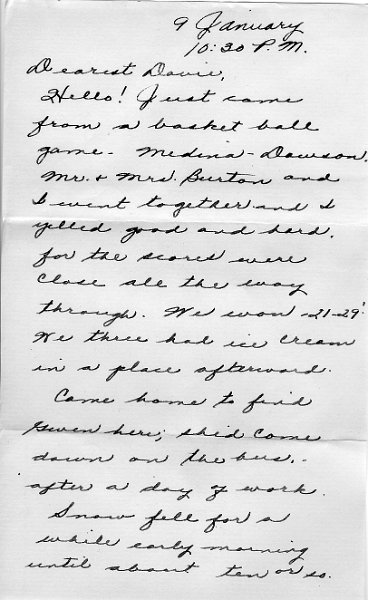 9 January
10:30 P.M.
Dearest Davie,
Hello! Just came
from a basket ball
game - Medina - Dawson.
Mr. & Mrs. Burton and
I went together and I
yelled good and hard,
for the scores were
close all the way
through. We won -21-29'
We three had ice cream
in a place afterward.
Came home to find
Gwen here; she'd come
down on the bus,
after a day of work.
Snow fell for a
while early morning
until about ten or so.